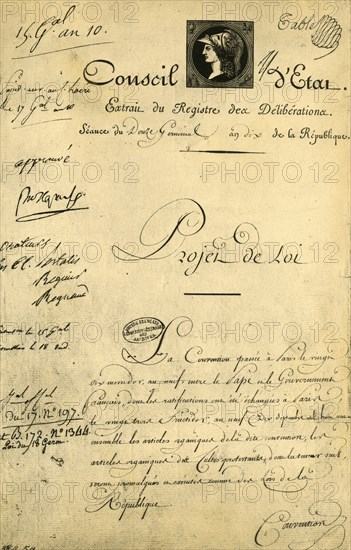 15 G.al an 10.
Table
Conseil d'Etat.
Extrait du Registre des Délibérations.
Séance du Douze Germinal an dix de la République.
le 17 G.al
approuvé
Projet de Loi
orateurs
les C. Portalis
Regnier
Regnaud
La Convention passée à Paris le vingt
six messidor, an neuf entre le Pape et le Gouvernement
français, dont les ratifications ont été échangées à Paris
le vingt trois fructidor, an neuf
ensemble les articles organiques de la dite convention, les
articles organiques des Cultes protestants, dont la teneur suit,
seront promulgués et exécutés comme des Lois de la
République
du 17. N° 197.
et B. 172. N° 1344
Loi du 18 Germ
Convention
PHOTO 12